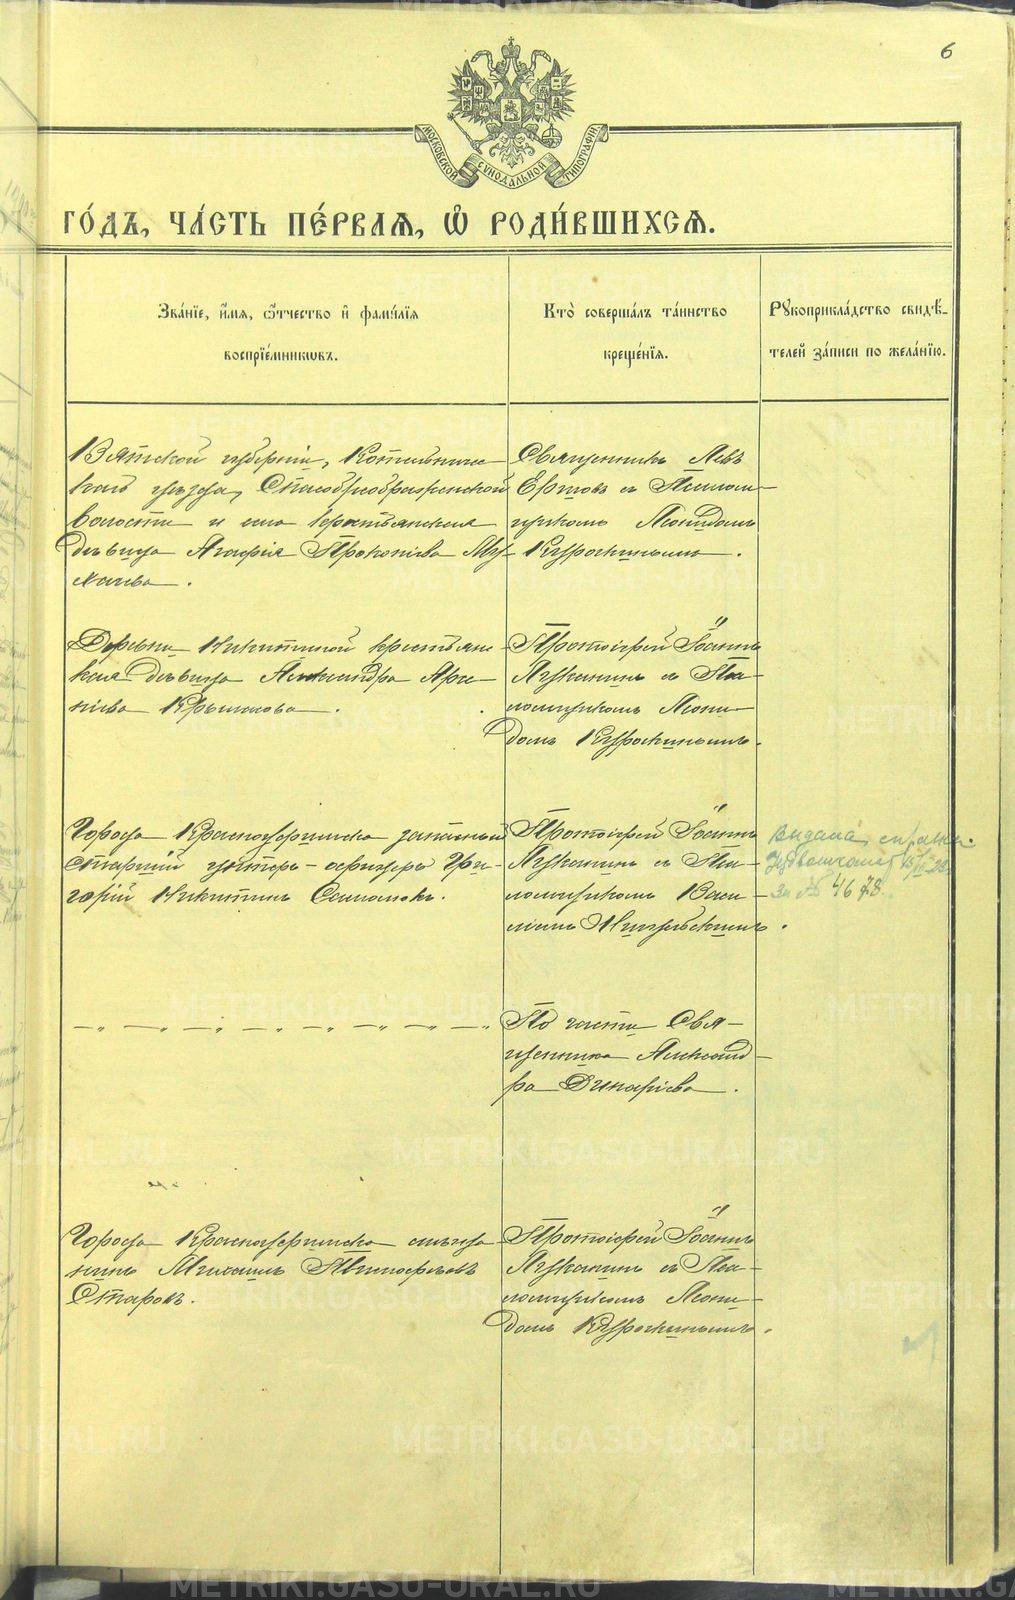 6
МОСКОВСКОЙ СУНОДАЛЬНОЙ ТИПОГРАФІИ
ГО́ДЪ, ЧА́СТЬ ПЕ́РВАѦ, Ѡ҆ РОДИ́ВШИХСѦ.
Зва́нїе, и҆́мѧ, ѻ҆́тчество и҆ фами́лїѧ
воспрїе́мникѡвъ.
Кто̀ соверша́лъ та́инство
креще́нїѧ.
Рꙋкоприкла́дство свидѣ́-
телей за́писи по жела́нїю.
Вятской губерніи, Котельниче-
скаго уѣзда, Спасопреображенской
волости и села крестьянская
дѣвица Агафія Прокопіева Му-
хачева.
Священникъ Левъ
Ершовъ съ Псалом-
щикомъ Леонидомъ
Курочкинымъ.
Деревни Никитиной крестьянс-
кая дѣвица Александра Арсе-
ніева Крылова.
Протоіерей Іоаннъ
Луканинъ съ Пса-
ломщикомъ Леони-
домъ Курочкинымъ.
Города Красноуфимска запасный
старшій унтеръ-офицеръ Гри-
горій Никитинъ
Протоіерей Іоаннъ
Луканинъ съ Пса-
ломщикомъ Васи-
ліемъ
Выдана справка
за № 4678.
По части Свя-
щенника Александ-
ра Динаріева.
Города Красноуфимска мѣща-
нинъ Михаилъ
Старовъ.
Протоіерей Іоаннъ
Луканинъ съ Пса-
ломщикомъ Леони-
домъ Курочкинымъ.
METRIKI.GASO-URAL.RU